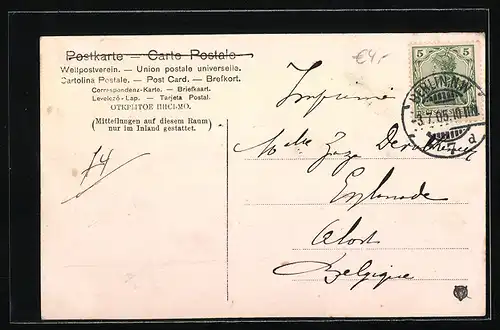 Postkarte — Carte Postale
Weltpostverein. — Union postale universelle.
Cartolina Postale. — Post Card. — Brefkort.
Correspondenz-Karte. — Briefkaart.
Levelező-Lap. — Tarjeta Postal.
ОТКРЫТОЕ ПИСЬМО.
(Mitteilungen auf diesem Raum
nur im Inland gestattet.)
€4,-
5 5
BERLIN N.W.
3.7.05.10
7 d
Imprimé
14
Esplanade
Alost
Belgique